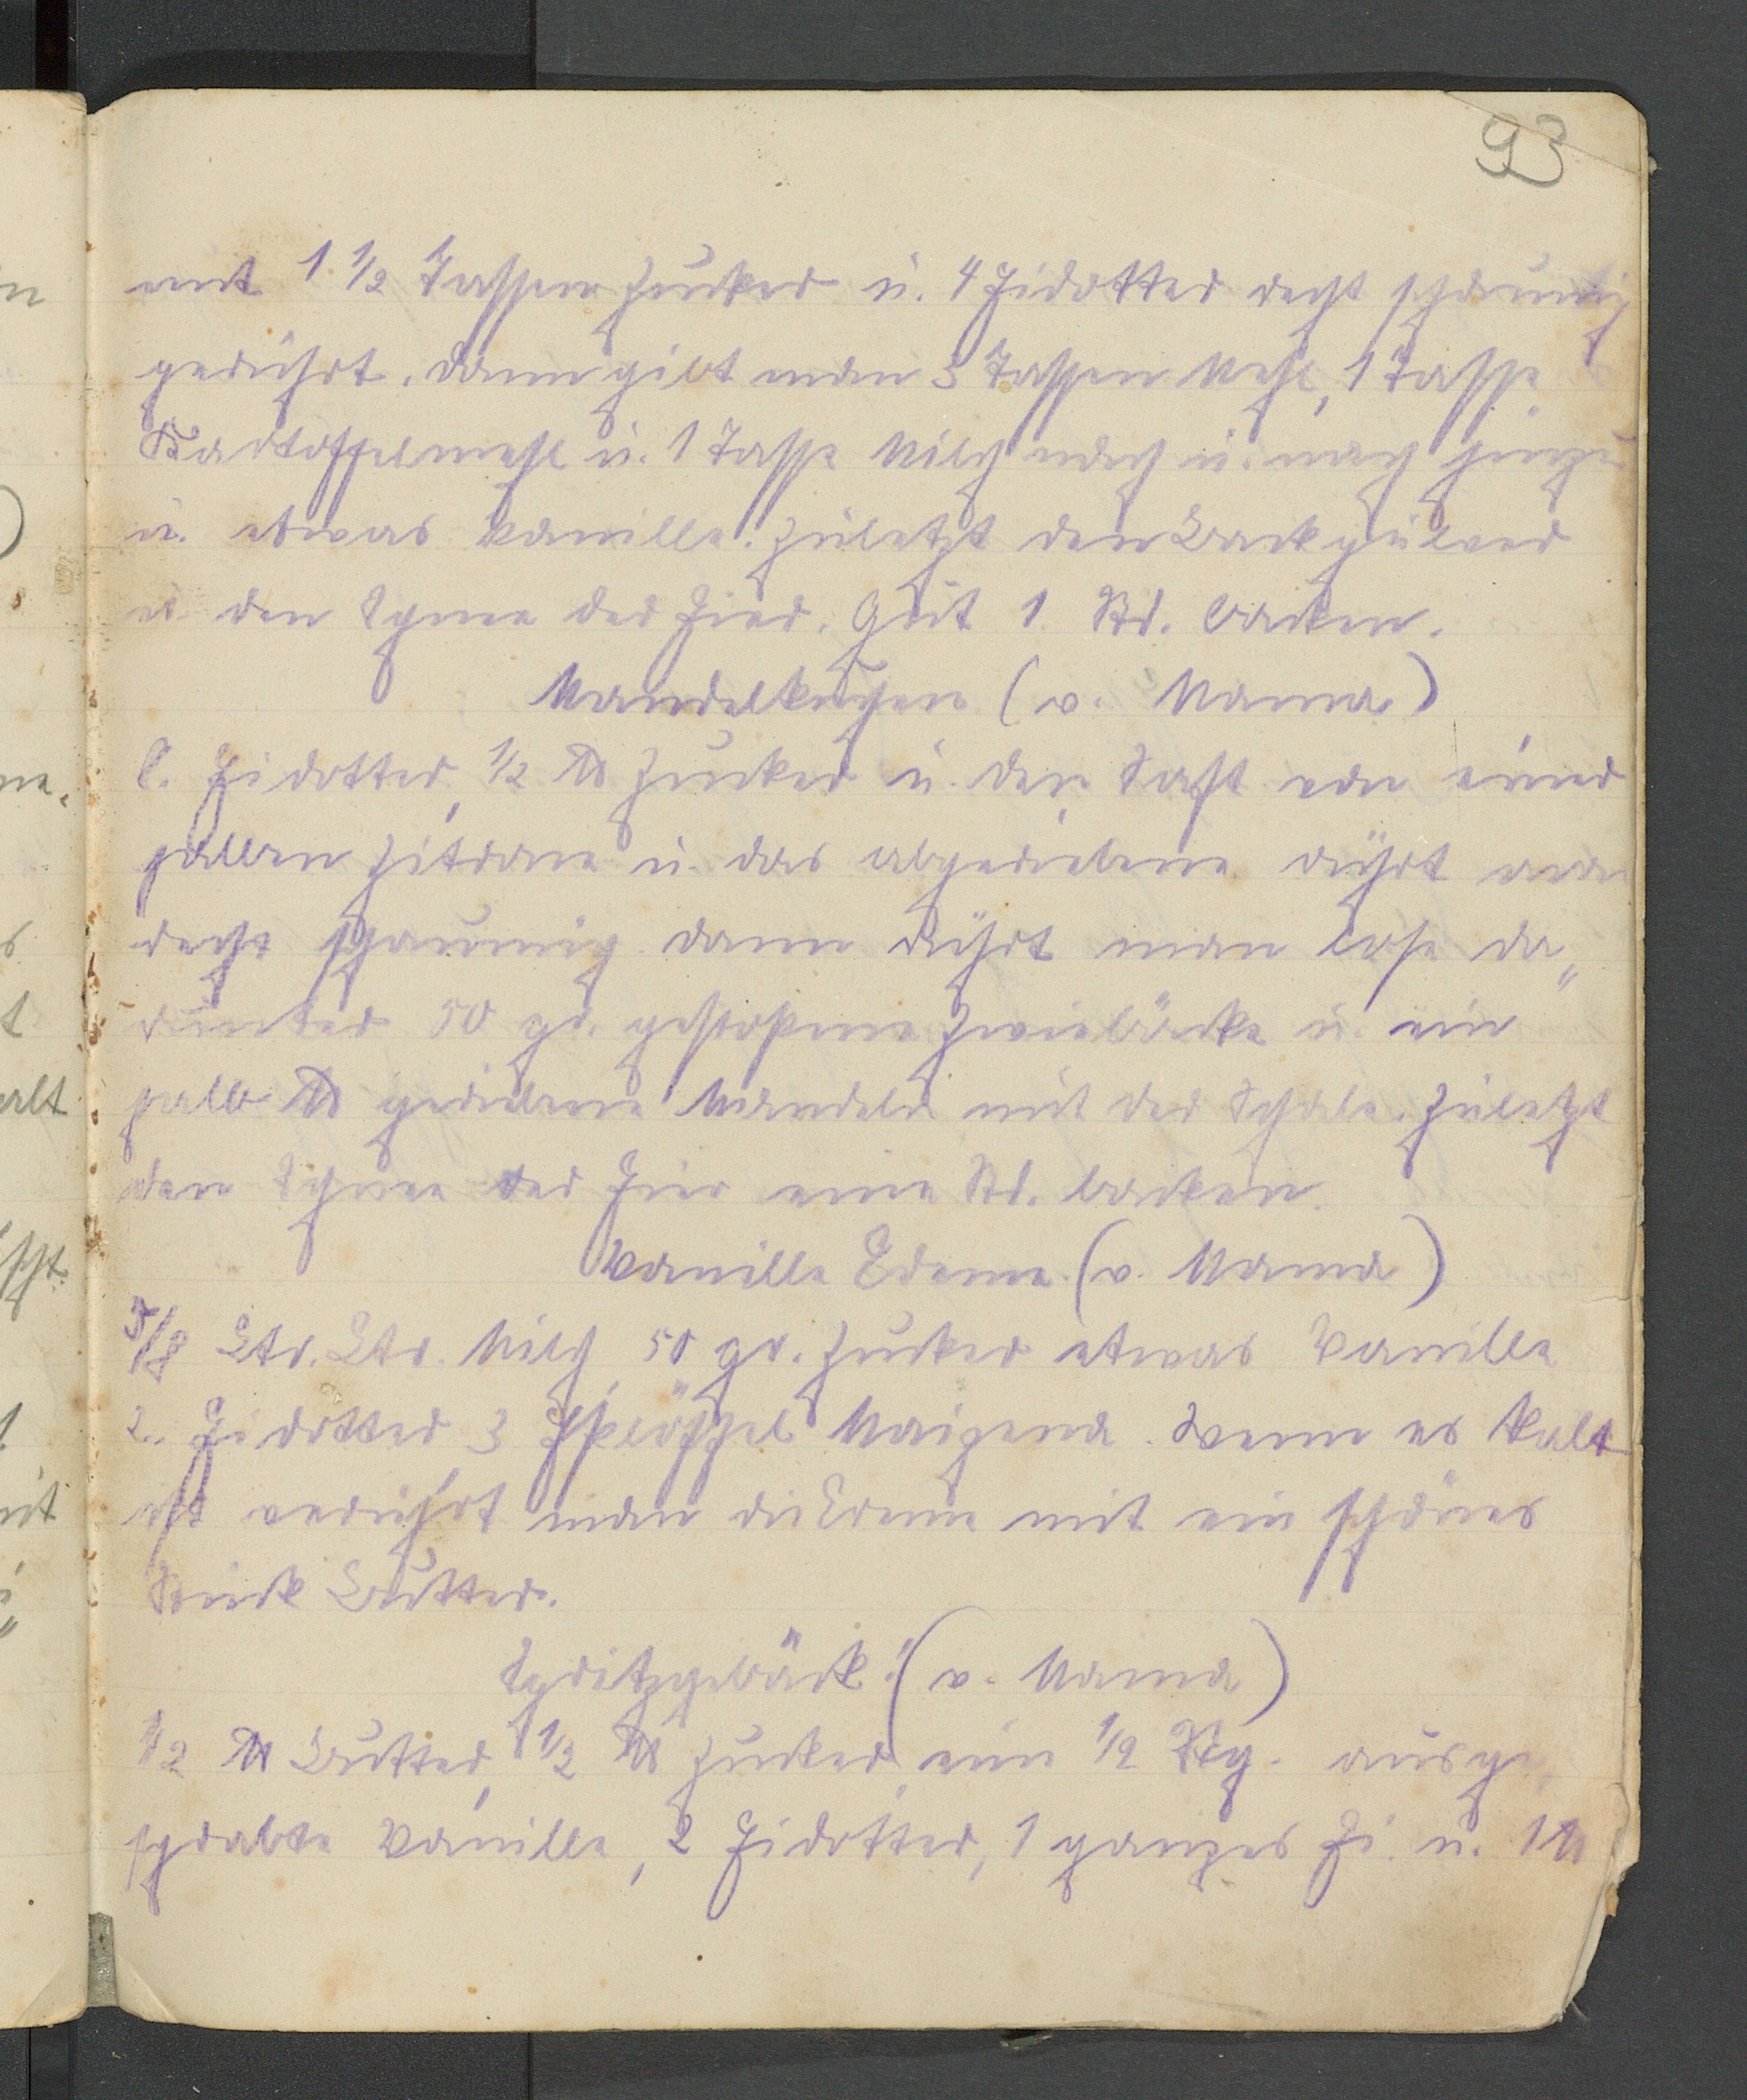 93
mit 1 1/2 Tassen Zucker u. 4 Eidotter recht schaumig
gerührt. Dann gibt man 3 Tassen Mehl, 1 Tasse
Kartoffelmehl u. 1 Tasse Milch nach u. nach hinzu
u. etwas Vanille. Zuletzt den Backpulver
u. den Schnee der Eier. Gut 1 Std. backen.
Mandelkuchen (v. Mama)
8. Eidotter, 1/2 ℔ Zucker u. den Saft von einer
halben Zitrone u. das abgeriebene rührt man
recht schaumig dann rührt man lose da„
runter 50 gr. gestoßene Zwiebäcke u. ein
halb ℔ geriebene Mandeln mit der Schale. Zuletzt
den Schnee der Eier eine Std. backen.
Vanille Creme (v. Mama)
3/8 Ltr. Ltr. Milch, 50 gr. Zucker etwas Vanille
2. Eidotter, 3 Eßlöffel Maizena. Wenn es kalt
ist verrührt man die Creme mit ein schönes
Stück Butter.
Spritzgebäck. (v. Mama)
1/2 ℔ Butter, 1/2 ℔ Zucker, eine 1/2 ausge„
schrabte Vanille, 2 Eidotter, 1 ganzes Ei. u. 1 ℔